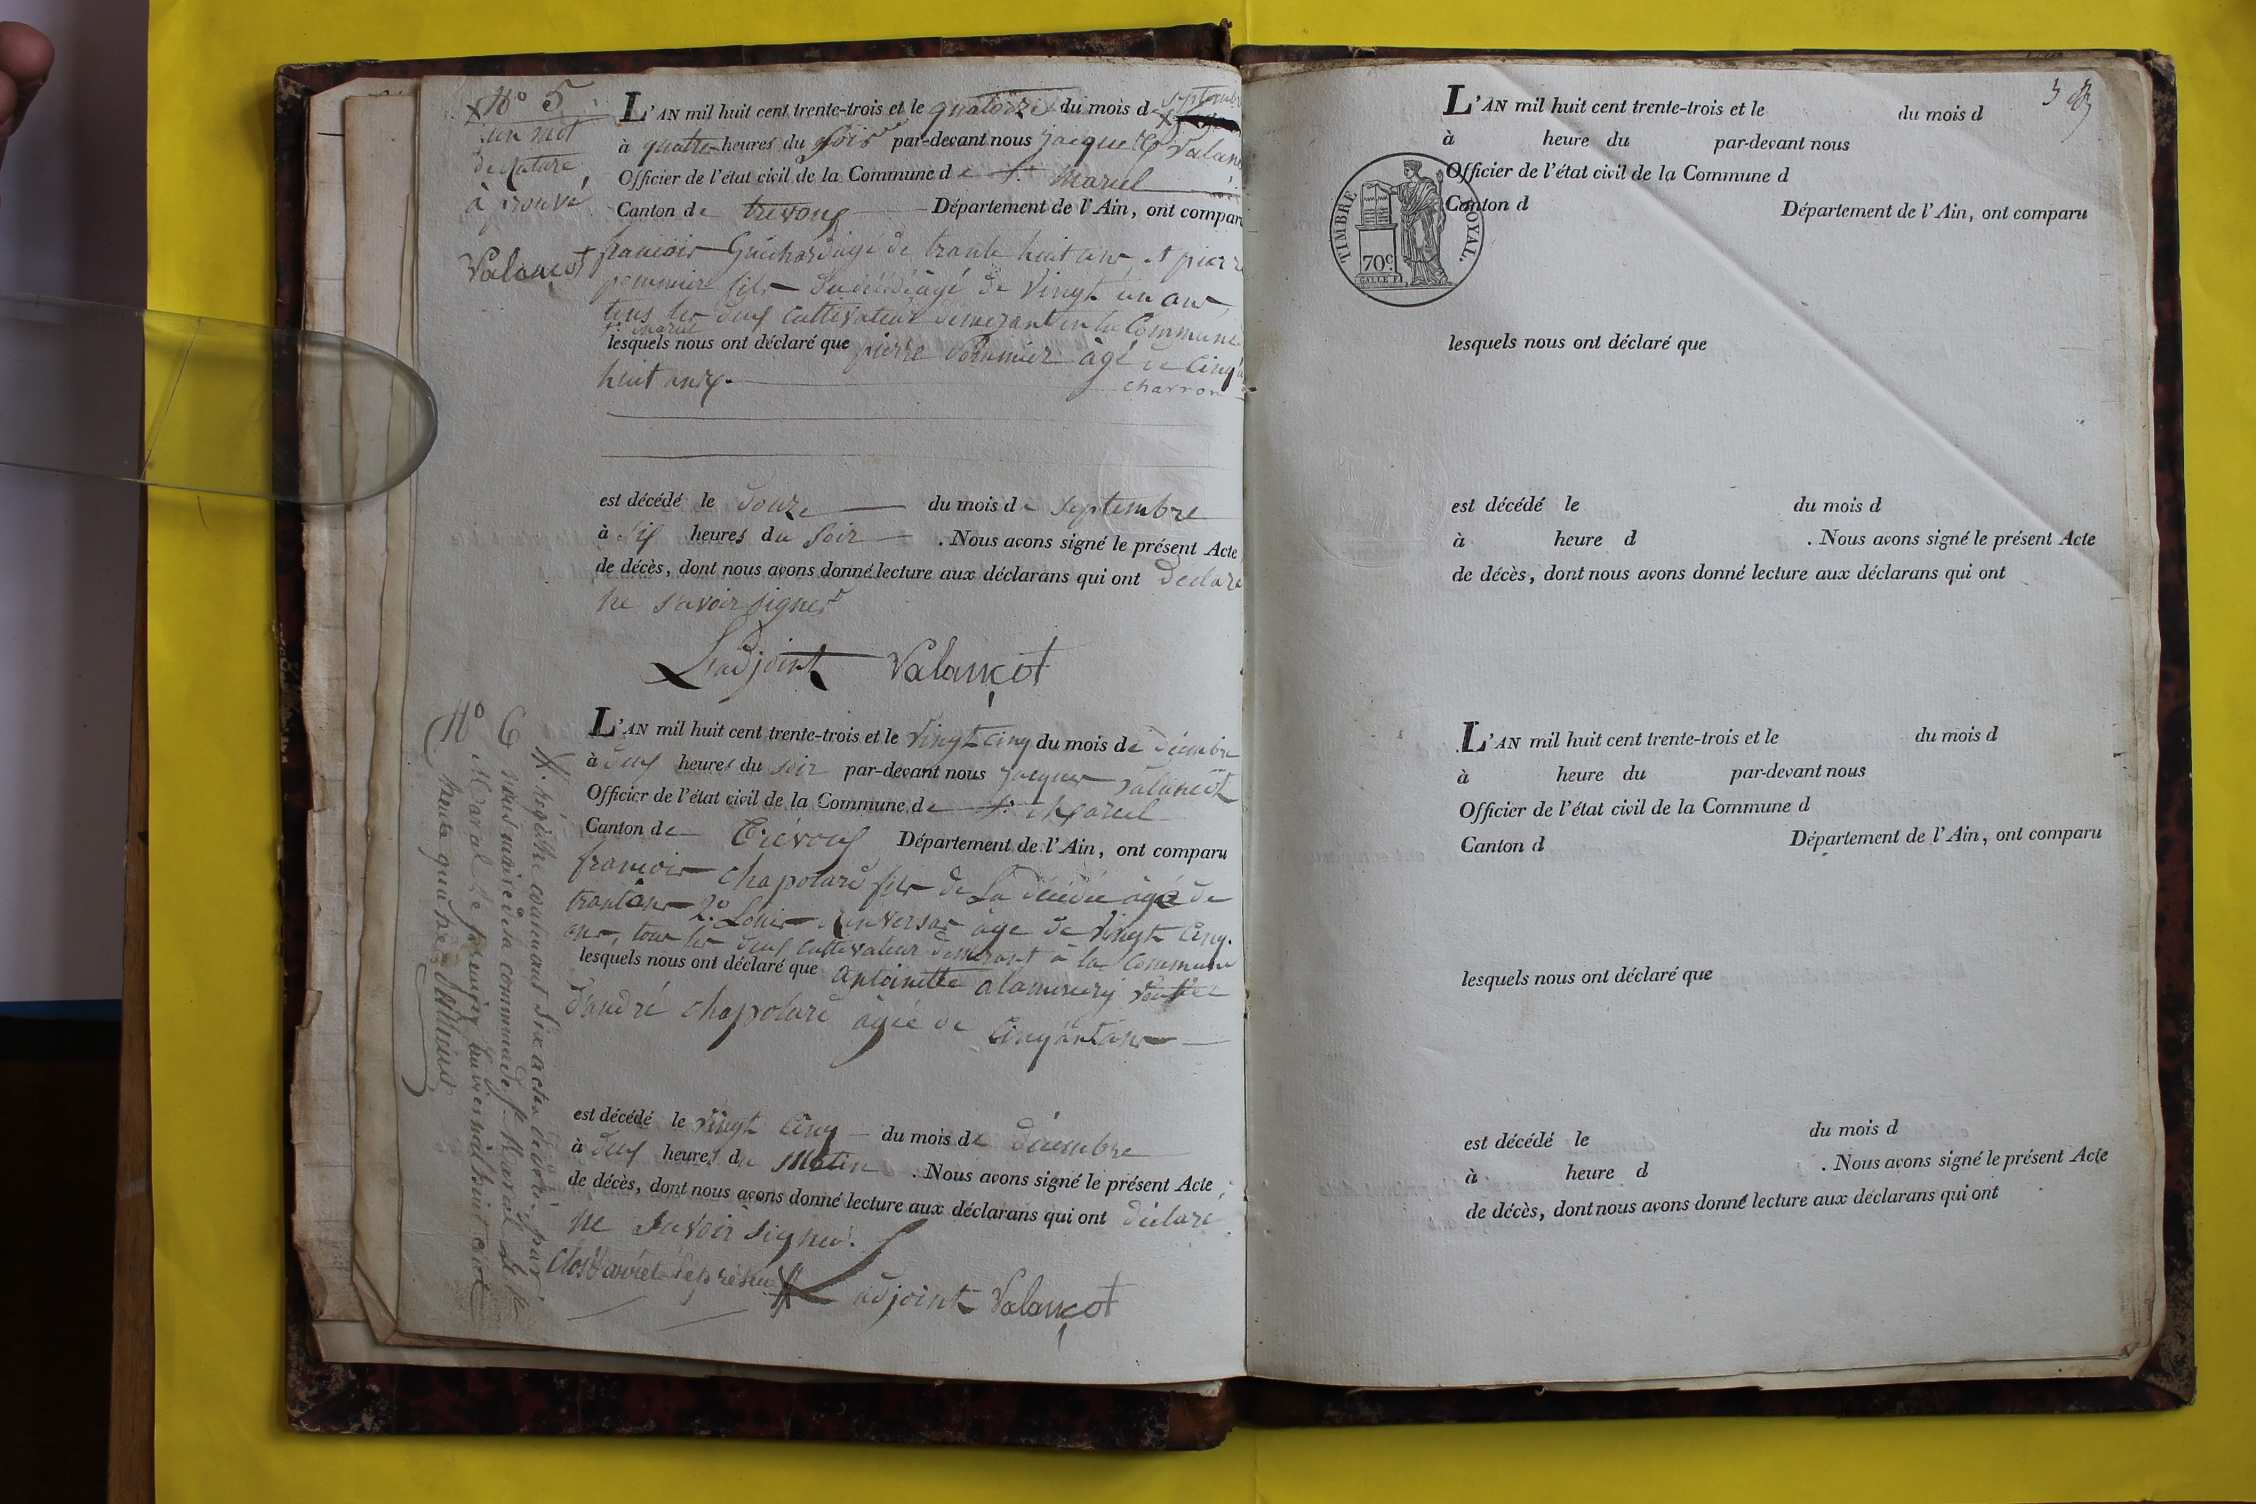 N° 5
un mot
de rature
à prouvé
Valançot
L'AN mil huit cent trente-trois et le quatorze du mois d septembre
à quatre heures du soir par-devant nous jacque
Officier de l'état civil de la Commune de St Marcel
Canton de trevoux Département de l'Ain, ont comparu
francois Guichard âgé de trante huit ans et pierre
pommier fils du décédé âgé de vingt un ans
tous les deux cultivateur demerant en la Commune
St marcel
lesquels nous ont déclaré que pierre pommier âgé de
huit ans
charron
est décédé le douze du mois de septembre
à six heures du soir . Nous avons signé le présent Acte
de décès, dont nous avons donné lecture aux déclarans qui ont declaré
ne savoir signer
L'adjoint Valançot
N° 6
L'AN mil huit cent trente-trois et le vingt cinq du mois de décembre
à deux heures du soir par-devant nous jacques Valancot
Officier de l'état civil de la Commune de St Marcel
Canton de Trévoux Département de l'Ain, ont comparu
francois chapolard fils de La décédée âgé de
trantans 2° Louis âge de vingt cinq
ans, tous les deux cultivateur demerant à la Commune
lesquels nous ont déclaré que antoinette
d'andré chapolard âgée de cinqantans
est décédé le vingt cinq du mois de décembre
à deux heures du matin . Nous avons signé le présent Acte
de décès, dont nous avons donné lecture aux déclarans qui ont déclaré
ne savoir signer.
Clos & arrêté le présent
L'adjoint Valançot
régistre contenant six actes de décès, par
nous maire de la commune de St Marcel le
janvier mil huit cent
trente quatre
L'AN mil huit cent trente-trois et le du mois d
à heure du par-devant nous
Officier de l'état civil de la Commune d
Canton d Département de l'Ain, ont comparu
TIMBRE ROYAL.
70c
lesquels nous ont déclaré que
est décédé le du mois d
à heure d . Nous avons signé le présent Acte
de décès, dont nous avons donné lecture aux déclarans qui ont
L'AN mil huit cent trente-trois et le du mois d
à heure du par-devant nous
Officier de l'état civil de la Commune d
Canton d Département de l'Ain, ont comparu
lesquels nous ont déclaré que
est décédé le du mois d
à heure d . Nous avons signé le présent Acte
de décès, dont nous avons donné lecture aux déclarans qui ont